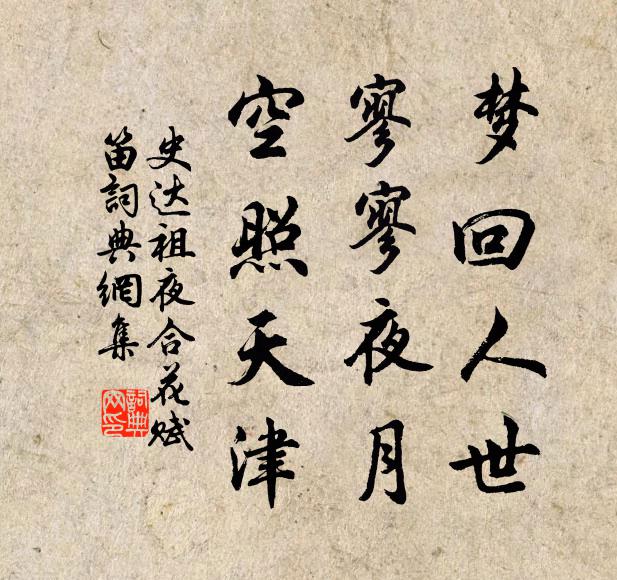 梦回人世
寥寥夜月
空照天津
史达祖夜合花赋
笛詞典網集
詞典
网印